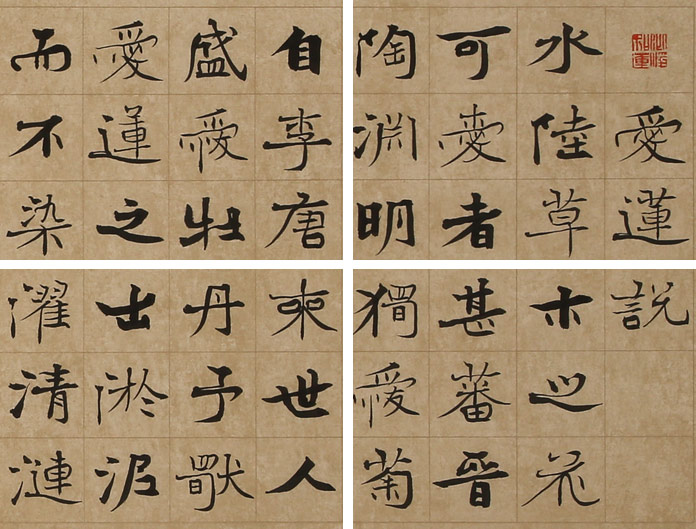 愛蓮說
水陸草木之花
可愛者甚蕃晉
陶淵明獨愛菊
自李唐來世人
盛愛牡丹予獨
愛蓮之出淤泥
而不染濯清漣